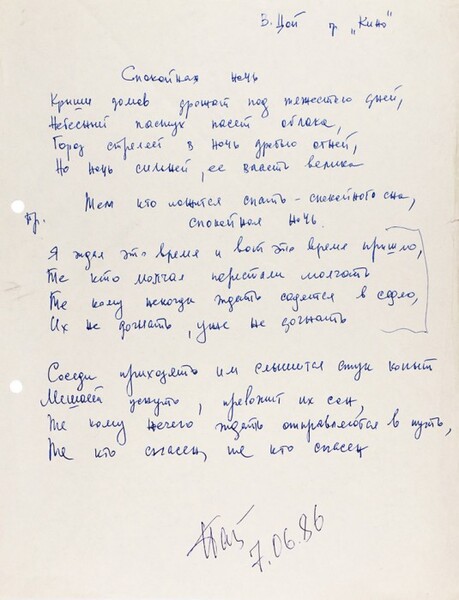 В. Цой гр. „Кино"
Спокойная ночь
Крыши домов дрожат под тяжестью дней,
Небесный пастух пасет облака,
Город стреляет в ночь дробью огней,
Но ночь сильней, ее власть велика
Тем кто ложится спать - спокойного сна,
Пр. спокойная ночь.
Я ждал это время и вот это время пришло,
Те кто молчал перестали молчать
Те кому некогда ждать садятся в седло,
Их не догнать, уже не догнать
Соседи приходять им слышится стук копыт
Мешает уснуть, тревожит их сон,
Те кому нечего ждать отправляются в путь,
Те кто спасен, те кто спасен
7.06.86